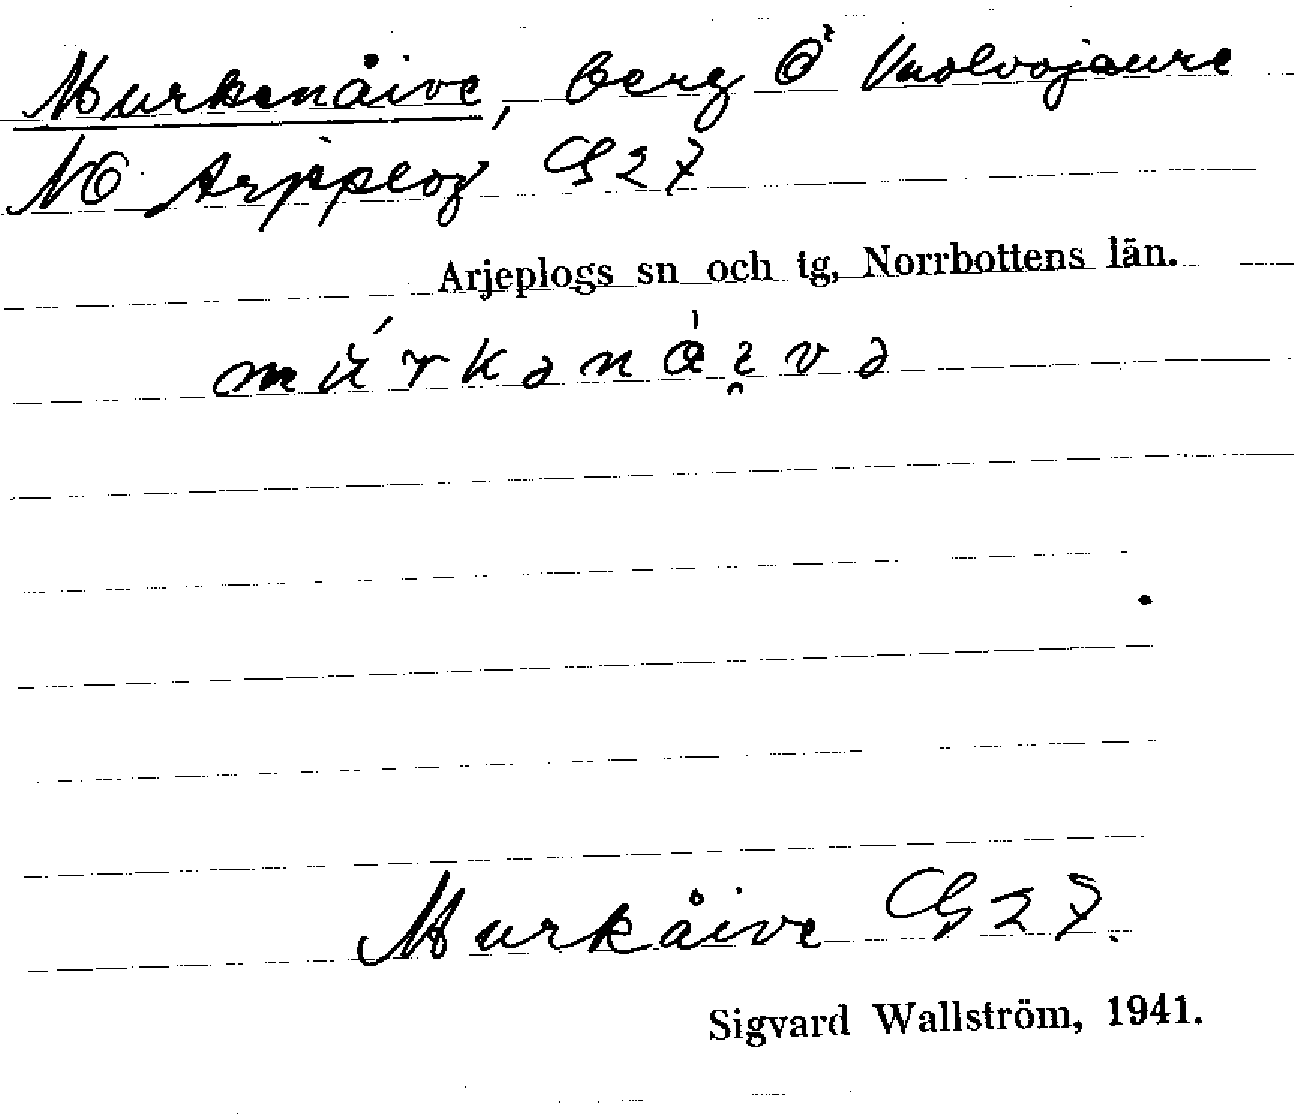 Murkenåive, berg Ö Vuolvojaure
NO Arjeplog G27
Arjeplogs sn och tg, Norrbottens län.
Murkåive G27.
Sigvard Wallström, 1941.